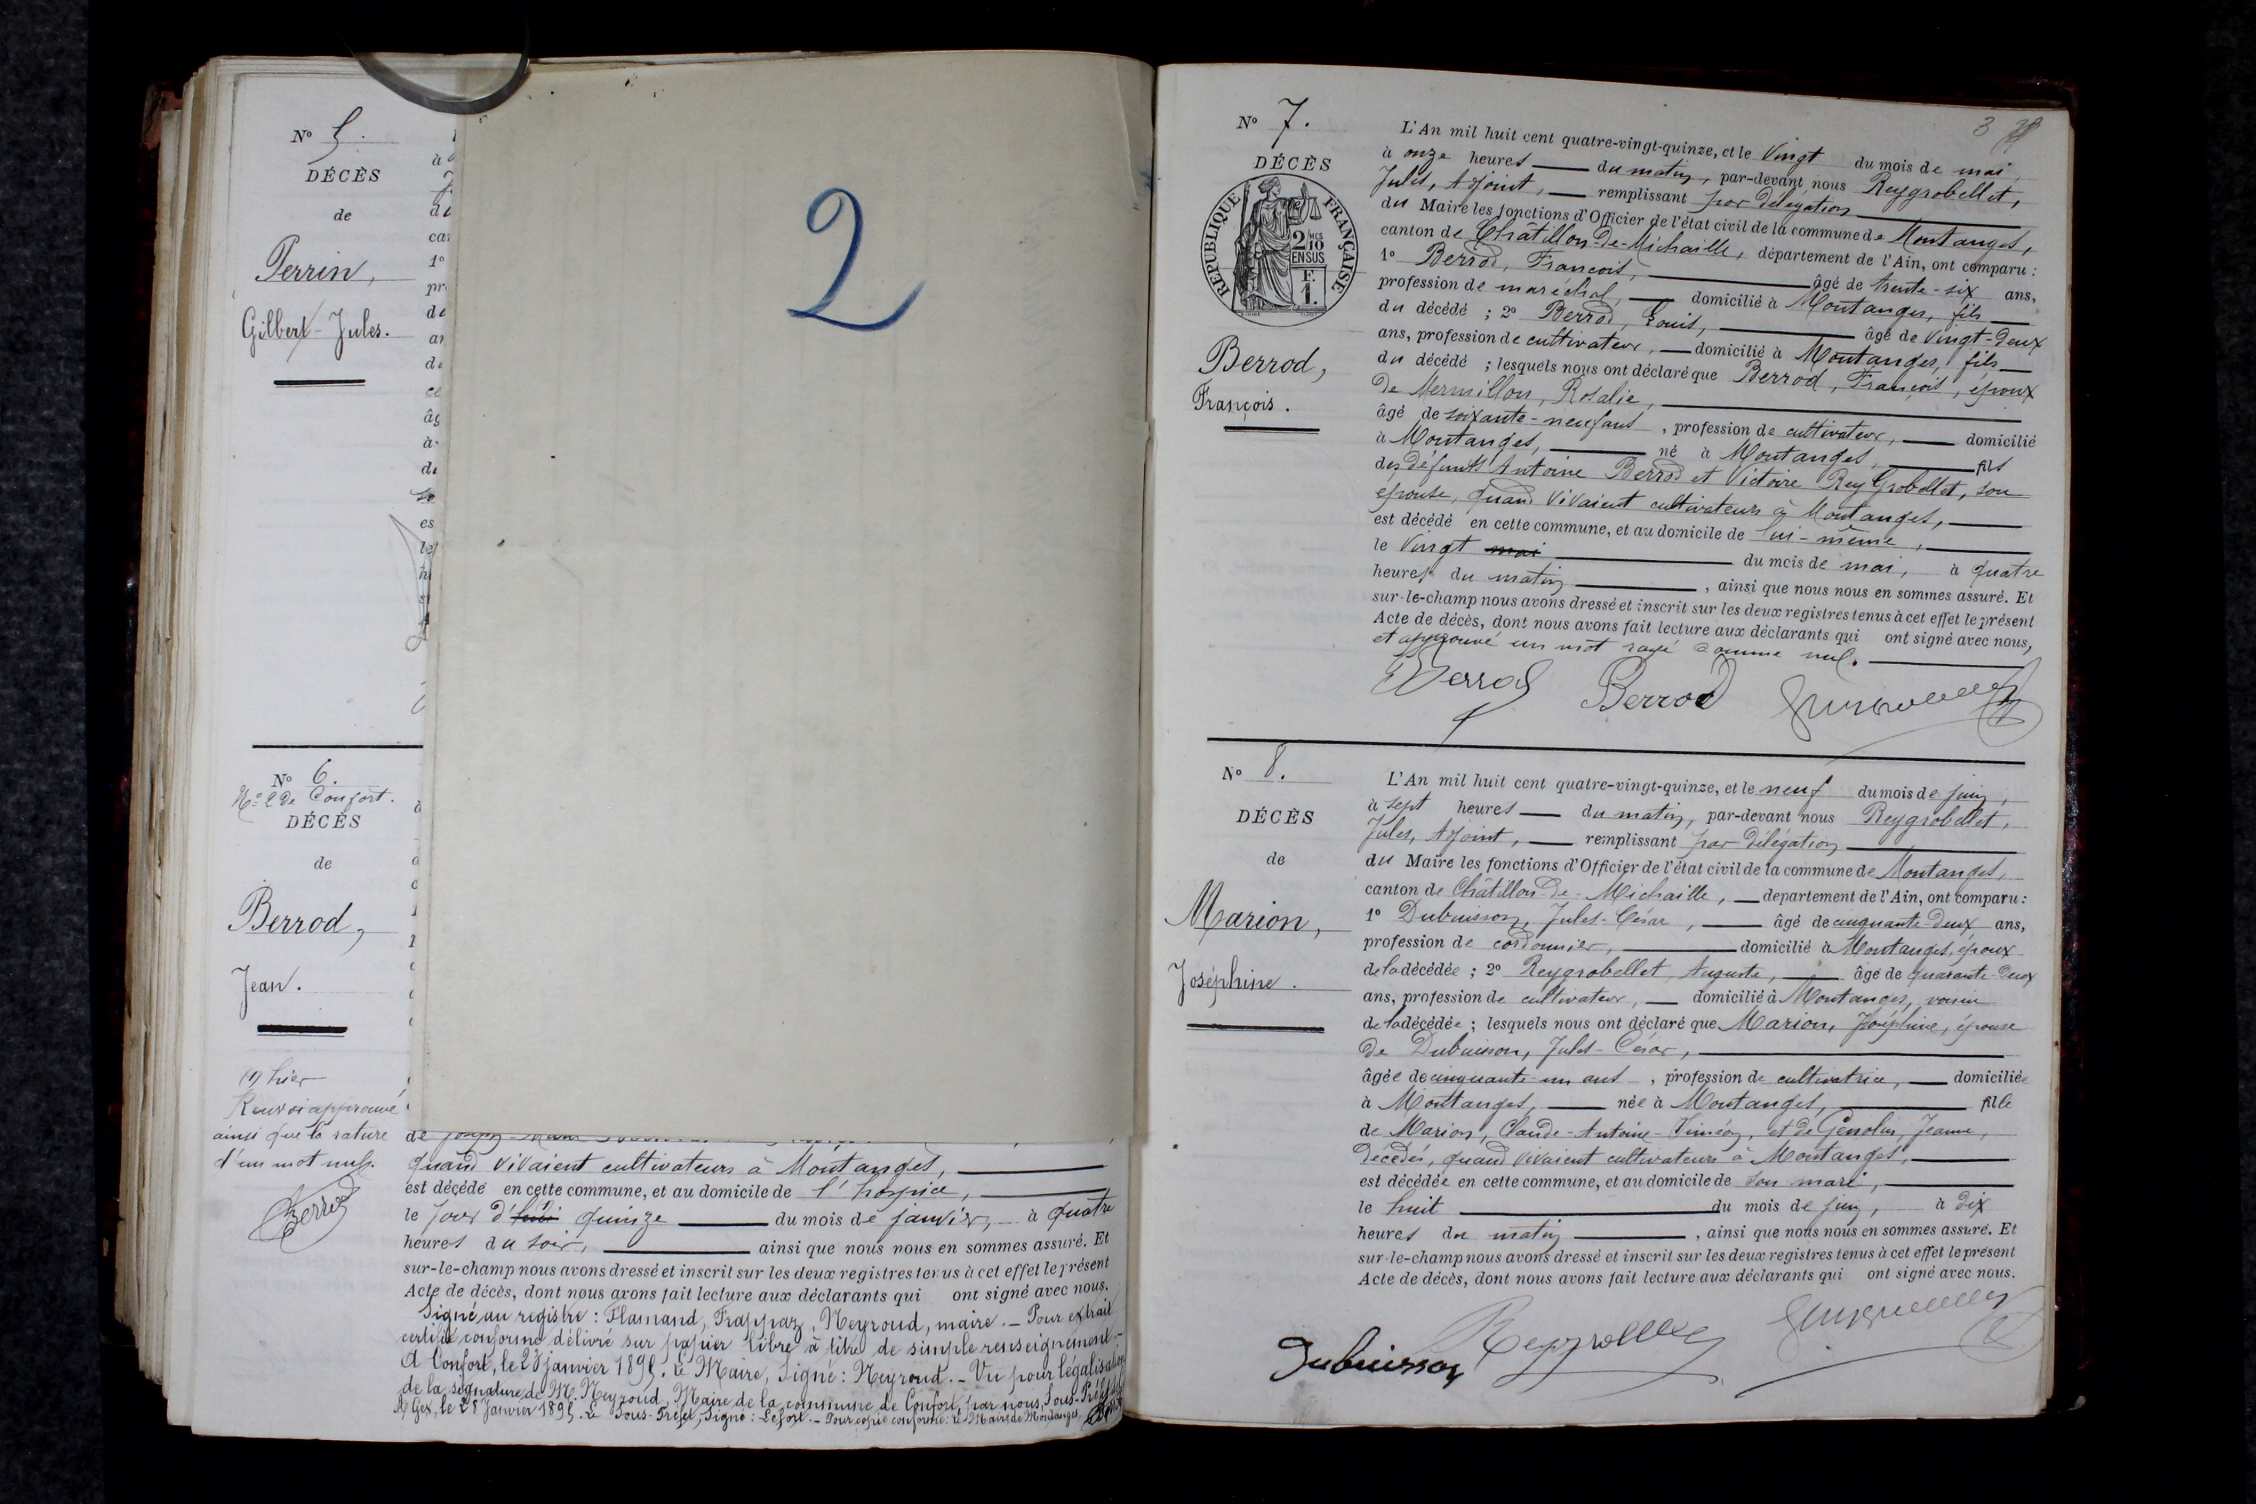 No 5.
DÉCÈS
de
Perrin,
Gilbert-Jules.
No 6.
No 2 de Confort.
DÉCÈS
de
Berrod,
Jean.
(1) hier
Renvoi approuvé
ainsi que la rature
d'un mot nul.
2
quand vivaient cultivateurs à Montanges,
est décédé en cette commune, et au domicile de l'hospice,
le jour d' quinze du mois de janvier, à quatre
heures du soir, ainsi que nous nous en sommes assuré. Et
sur-le-champ nous avons dressé et inscrit sur les deux registres tenus à cet effet le présent
Acte de décès, dont nous avons fait lecture aux déclarants qui ont signé avec nous.
Signé au registre : Flamand, Frappaz, Neyroud, maire. - Pour extrait
certifié conforme délivré sur papier libre à titre de simple renseignement.-
A Confort, le 23 janvier 1895. Le Maire, Signé : Neyroud. - Vu pour légalisation
de la signature de M. Neyroud, Maire de la commune de Confort, par nous, Sous-Préfet
A Gex, le 28 Janvier 1895. Le Sous-Préfet, Signé : Lefort. - Pour copie conforme : Le Maire de Montanges,
3
No 7.
DÉCÈS
RÉPUBLIQUE FRANÇAISE
2 10
EN SUS
F.
1.
Berrod,
François.
L'An mil huit cent quatre-vingt-quinze, et le vingt du mois de mai,
à onze heures du matin, par-devant nous Reygrobellet,
Jules, Adjoint, remplissant par délégation
du Maire les fonctions d'Officier de l'état civil de la commune de Montanges,
canton de Châtillon-de-Michaille, département de l'Ain, ont comparu :
1o Berrod, François, âgé de trente-six ans,
profession de maréchal, domicilié à Montanges, fils
du décédé ; 2o Berrod, Louis, âgé de vingt-deux
ans, profession de cultivateur, domicilié à Montanges, fils
du décédé ; lesquels nous ont déclaré que Berrod, François, époux
de Mermillon, Rosalie,
âgé de soixante-neuf ans, profession de cultivateur, domicilié
à Montanges, né à Montanges, fils
des défunts Antoine Berrod et Victoire Rey Grobellet, son
épouse, quand vivaient cultivateurs à Montanges,
est décédé en cette commune, et au domicile de lui-même,
le vingt mai du mois de mai, à quatre
heures du matin, ainsi que nous nous en sommes assuré. Et
sur-le-champ nous avons dressé et inscrit sur les deux registres tenus à cet effet le présent
Acte de décès, dont nous avons fait lecture aux déclarants qui ont signé avec nous,
et approuvé un mot rayé comme nul.
Berrod Berrod
No 8.
DÉCÈS
de
Marion,
Joséphine.
L'An mil huit cent quatre-vingt-quinze, et le neuf du mois de juin,
à sept heures du matin, par-devant nous Reygrobellet,
Jules, Adjoint, remplissant par délégation
du Maire les fonctions d'Officier de l'état civil de la commune de Montanges,
canton de Châtillon-de-Michaille, département de l'Ain, ont comparu :
1o Dubuisson, Jules-César, âgé de cinquante-deux ans,
profession de cordonnier, domicilié à Montanges, époux
de la décédée ; 2o Reygrobellet, Auguste, âgé de quarante-deux
ans, profession de cultivateur, domicilié à Montanges, voisin
de la décédée ; lesquels nous ont déclaré que Marion, Joséphine, épouse
de Dubuisson, Jules-César,
âgée de cinquante-un ans, profession de cultivatrice, domiciliée
à Montanges, née à Montanges, fille
de Marion, Claude-Antoine-Siméon, et de Genolin, Jeanne,
décédés, quand vivaient cultivateurs à Montanges,
est décédée en cette commune, et au domicile de son mari,
le huit du mois de juin, à dix
heures du matin, ainsi que nous nous en sommes assuré. Et
sur-le-champ nous avons dressé et inscrit sur les deux registres tenus à cet effet le présent
Acte de décès, dont nous avons fait lecture aux déclarants qui ont signé avec nous.
Dubuisson